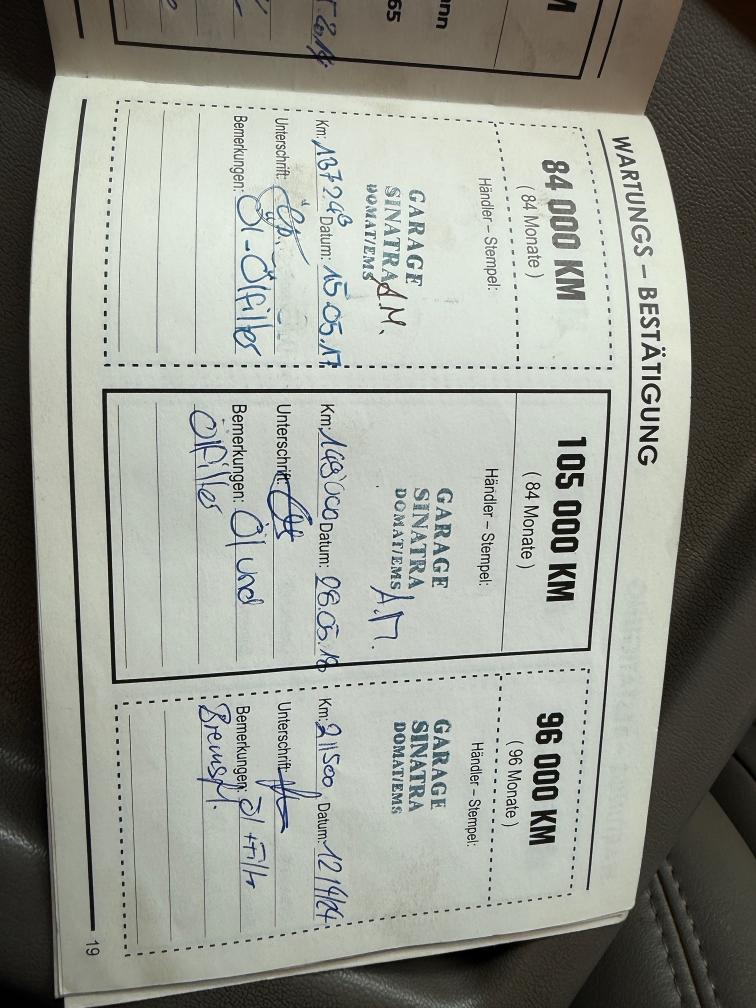 WARTUNGS – BESTÄTIGUNG
84 000 KM
( 84 Monate )
Händler – Stempel:
GARAGE
SINATRA
DOMAT/EMS
A.M.
Km: 137243 Datum: 15.05.17
Unterschrift:
Bemerkungen: Öl-Ölfilter
105 000 KM
( 84 Monate )
Händler – Stempel:
GARAGE
SINATRA
DOMAT/EMS
A.M.
Km: 149'000 Datum: 28.05.18
Unterschrift:
Bemerkungen: Öl und
Ölfilter
96 000 KM
( 96 Monate )
Händler – Stempel:
GARAGE
SINATRA
DOMAT/EMS
Km: 211500 Datum: 12/4/24
Unterschrift:
Bemerkungen: Öl + Filter
Bremsfl.
19